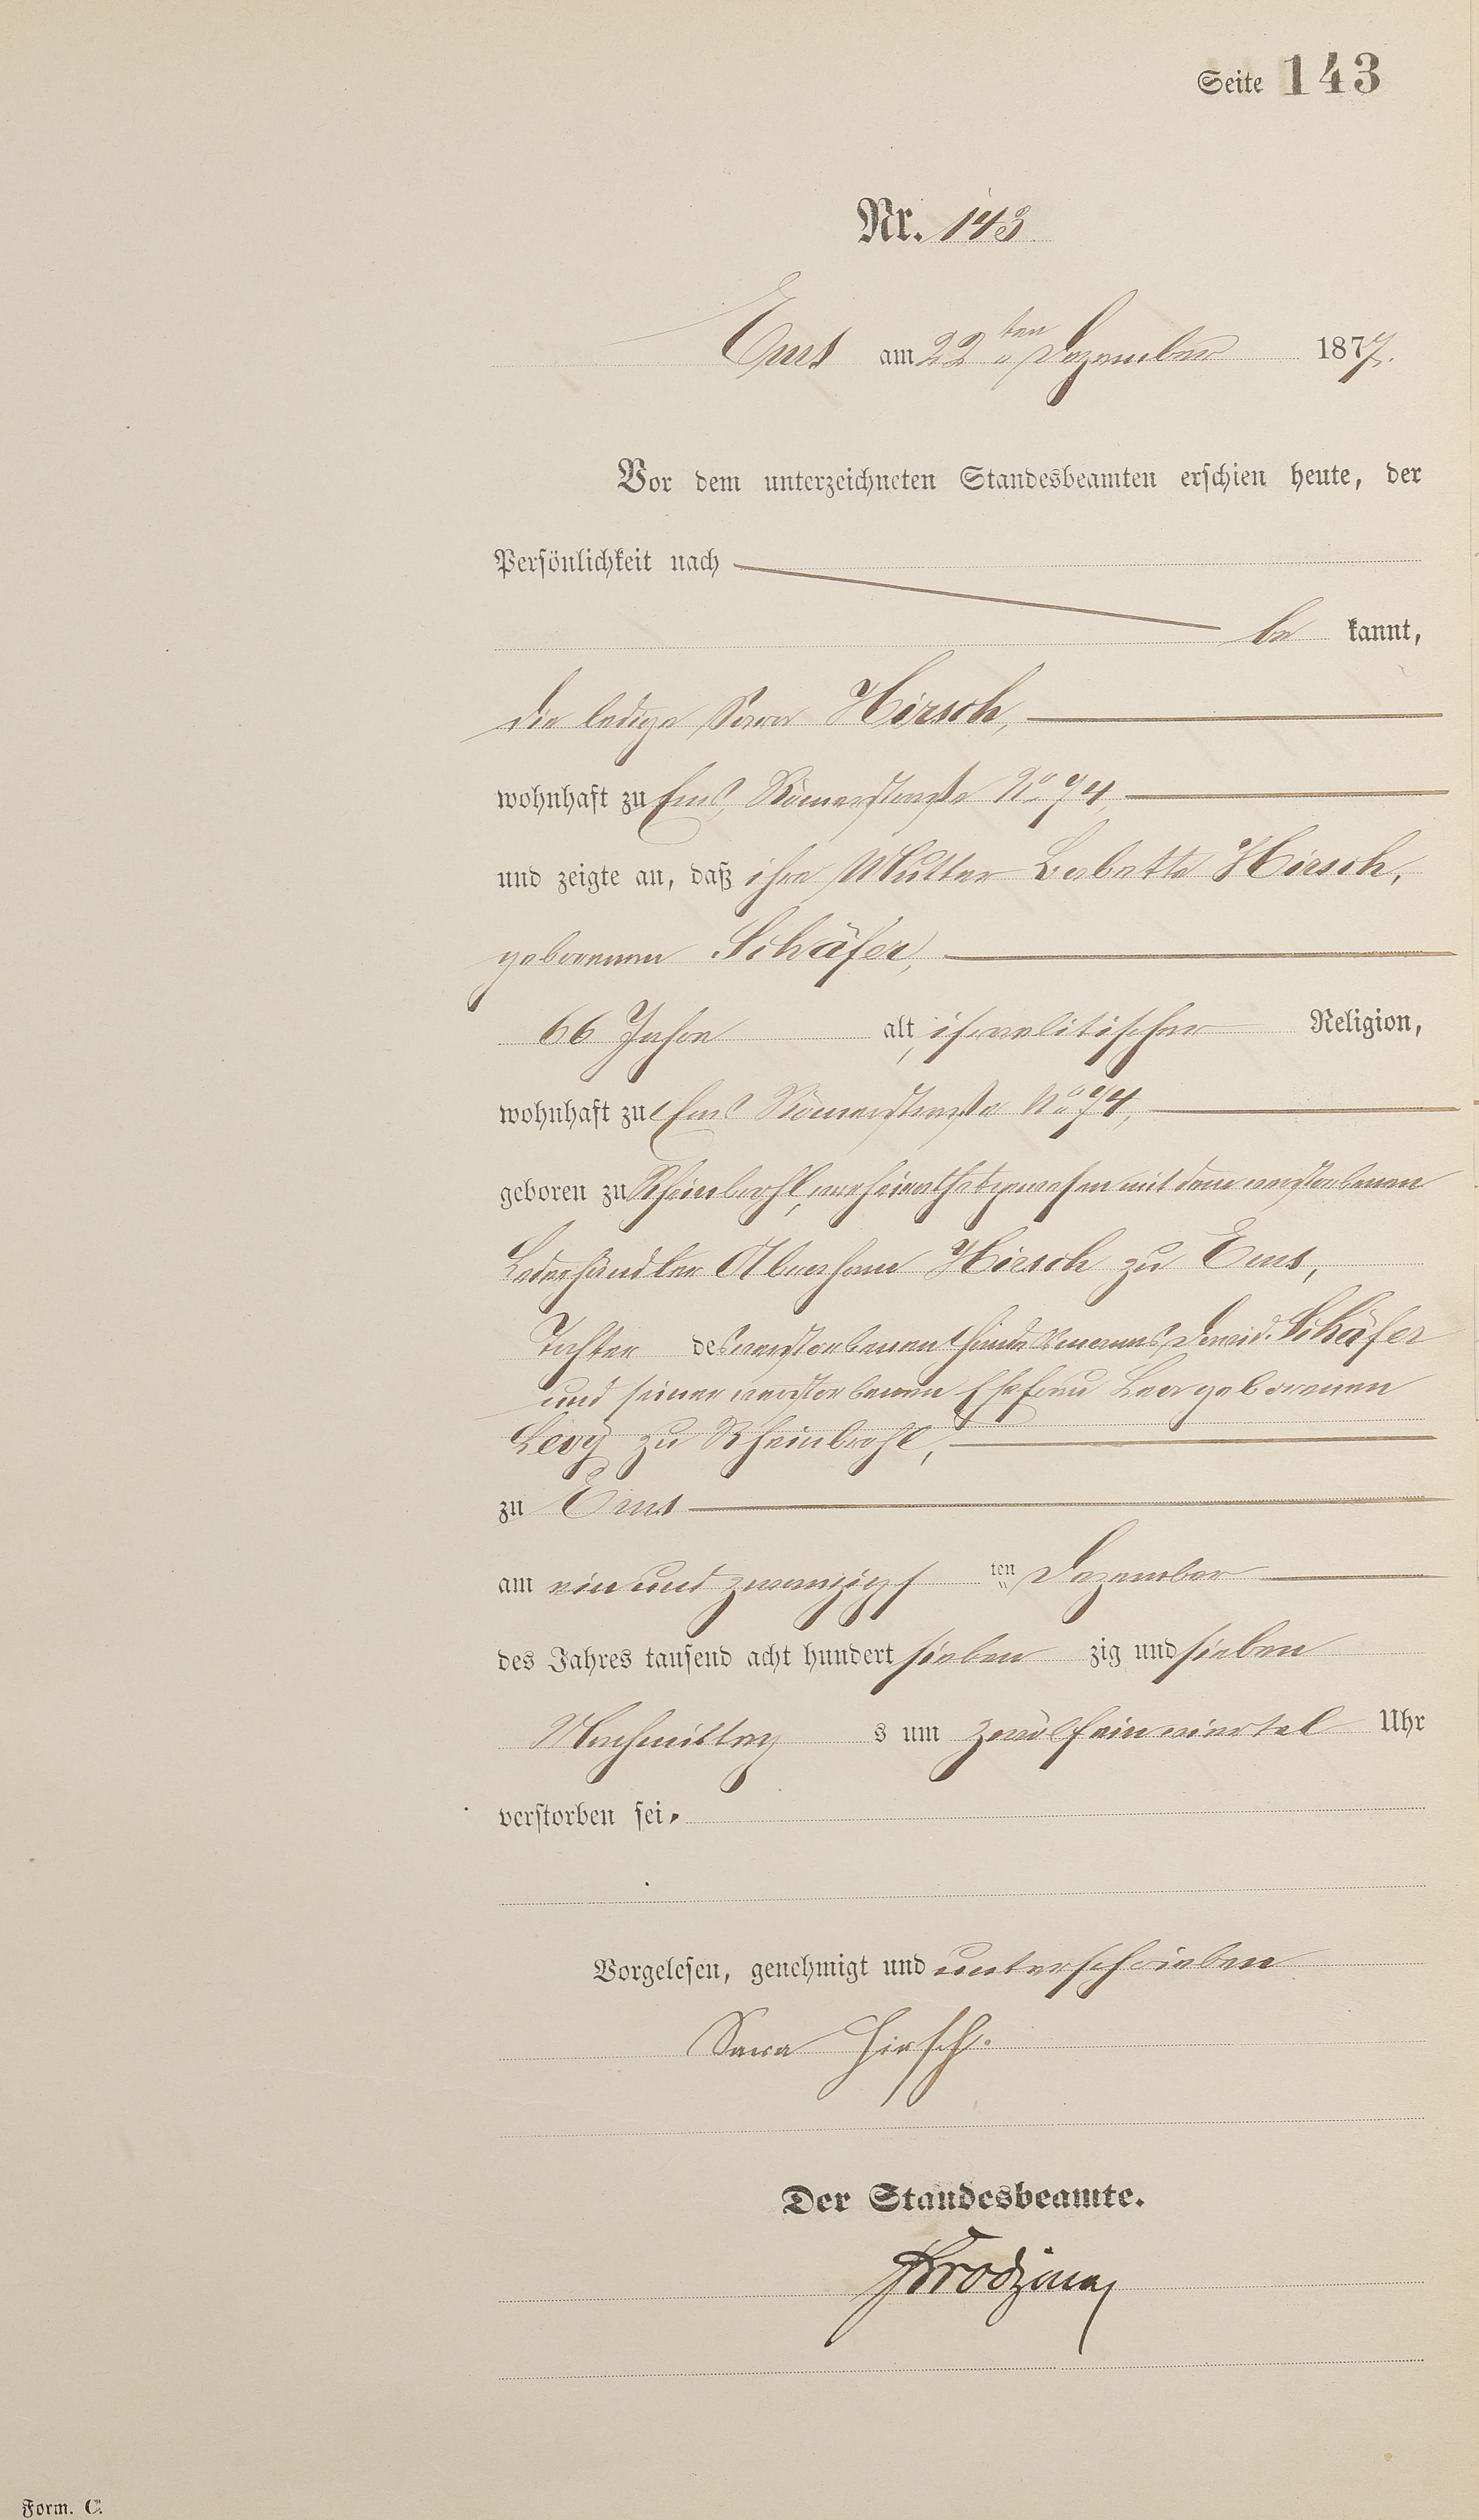 Seite 143
Nr. 143
Ems am 22ten Dezember 1877.
Vor dem unterzeichneten Standesbeamten erschien heute, der
Persönlichkeit nach
be kannt,
die ledige Sara Hirsch,
wohnhaft zu Ems, Römerstraße No 74,
und zeigte an, daß ihre Mutter Babette Hirsch,
geborenen Schäfer,
66 Jahre alt, israelitischer Religion,
wohnhaft zu Ems Römerstraße No 74,
geboren zu Rheinbrohl, verheirathet gewesen mit dem verstorbenen
Lederhändler Abraham Hirsch zu Ems,
Tochter des verstorbenen Handelsmanns David Schäfer
und seiner verstorbenen Ehefrau Lea geborenen
Levy zu Rheinbrohl,
zu Ems
am ein und zwanzigs ten Dezember
des Jahres tausend acht hundert sieben zig und sieben
Nachmittag s um zwölfeinviertel Uhr
verstorben sei.
Vorgelesen, genehmigt und unterschrieben
Sara Hirsch.
Der Standesbeamte.
Form. C.